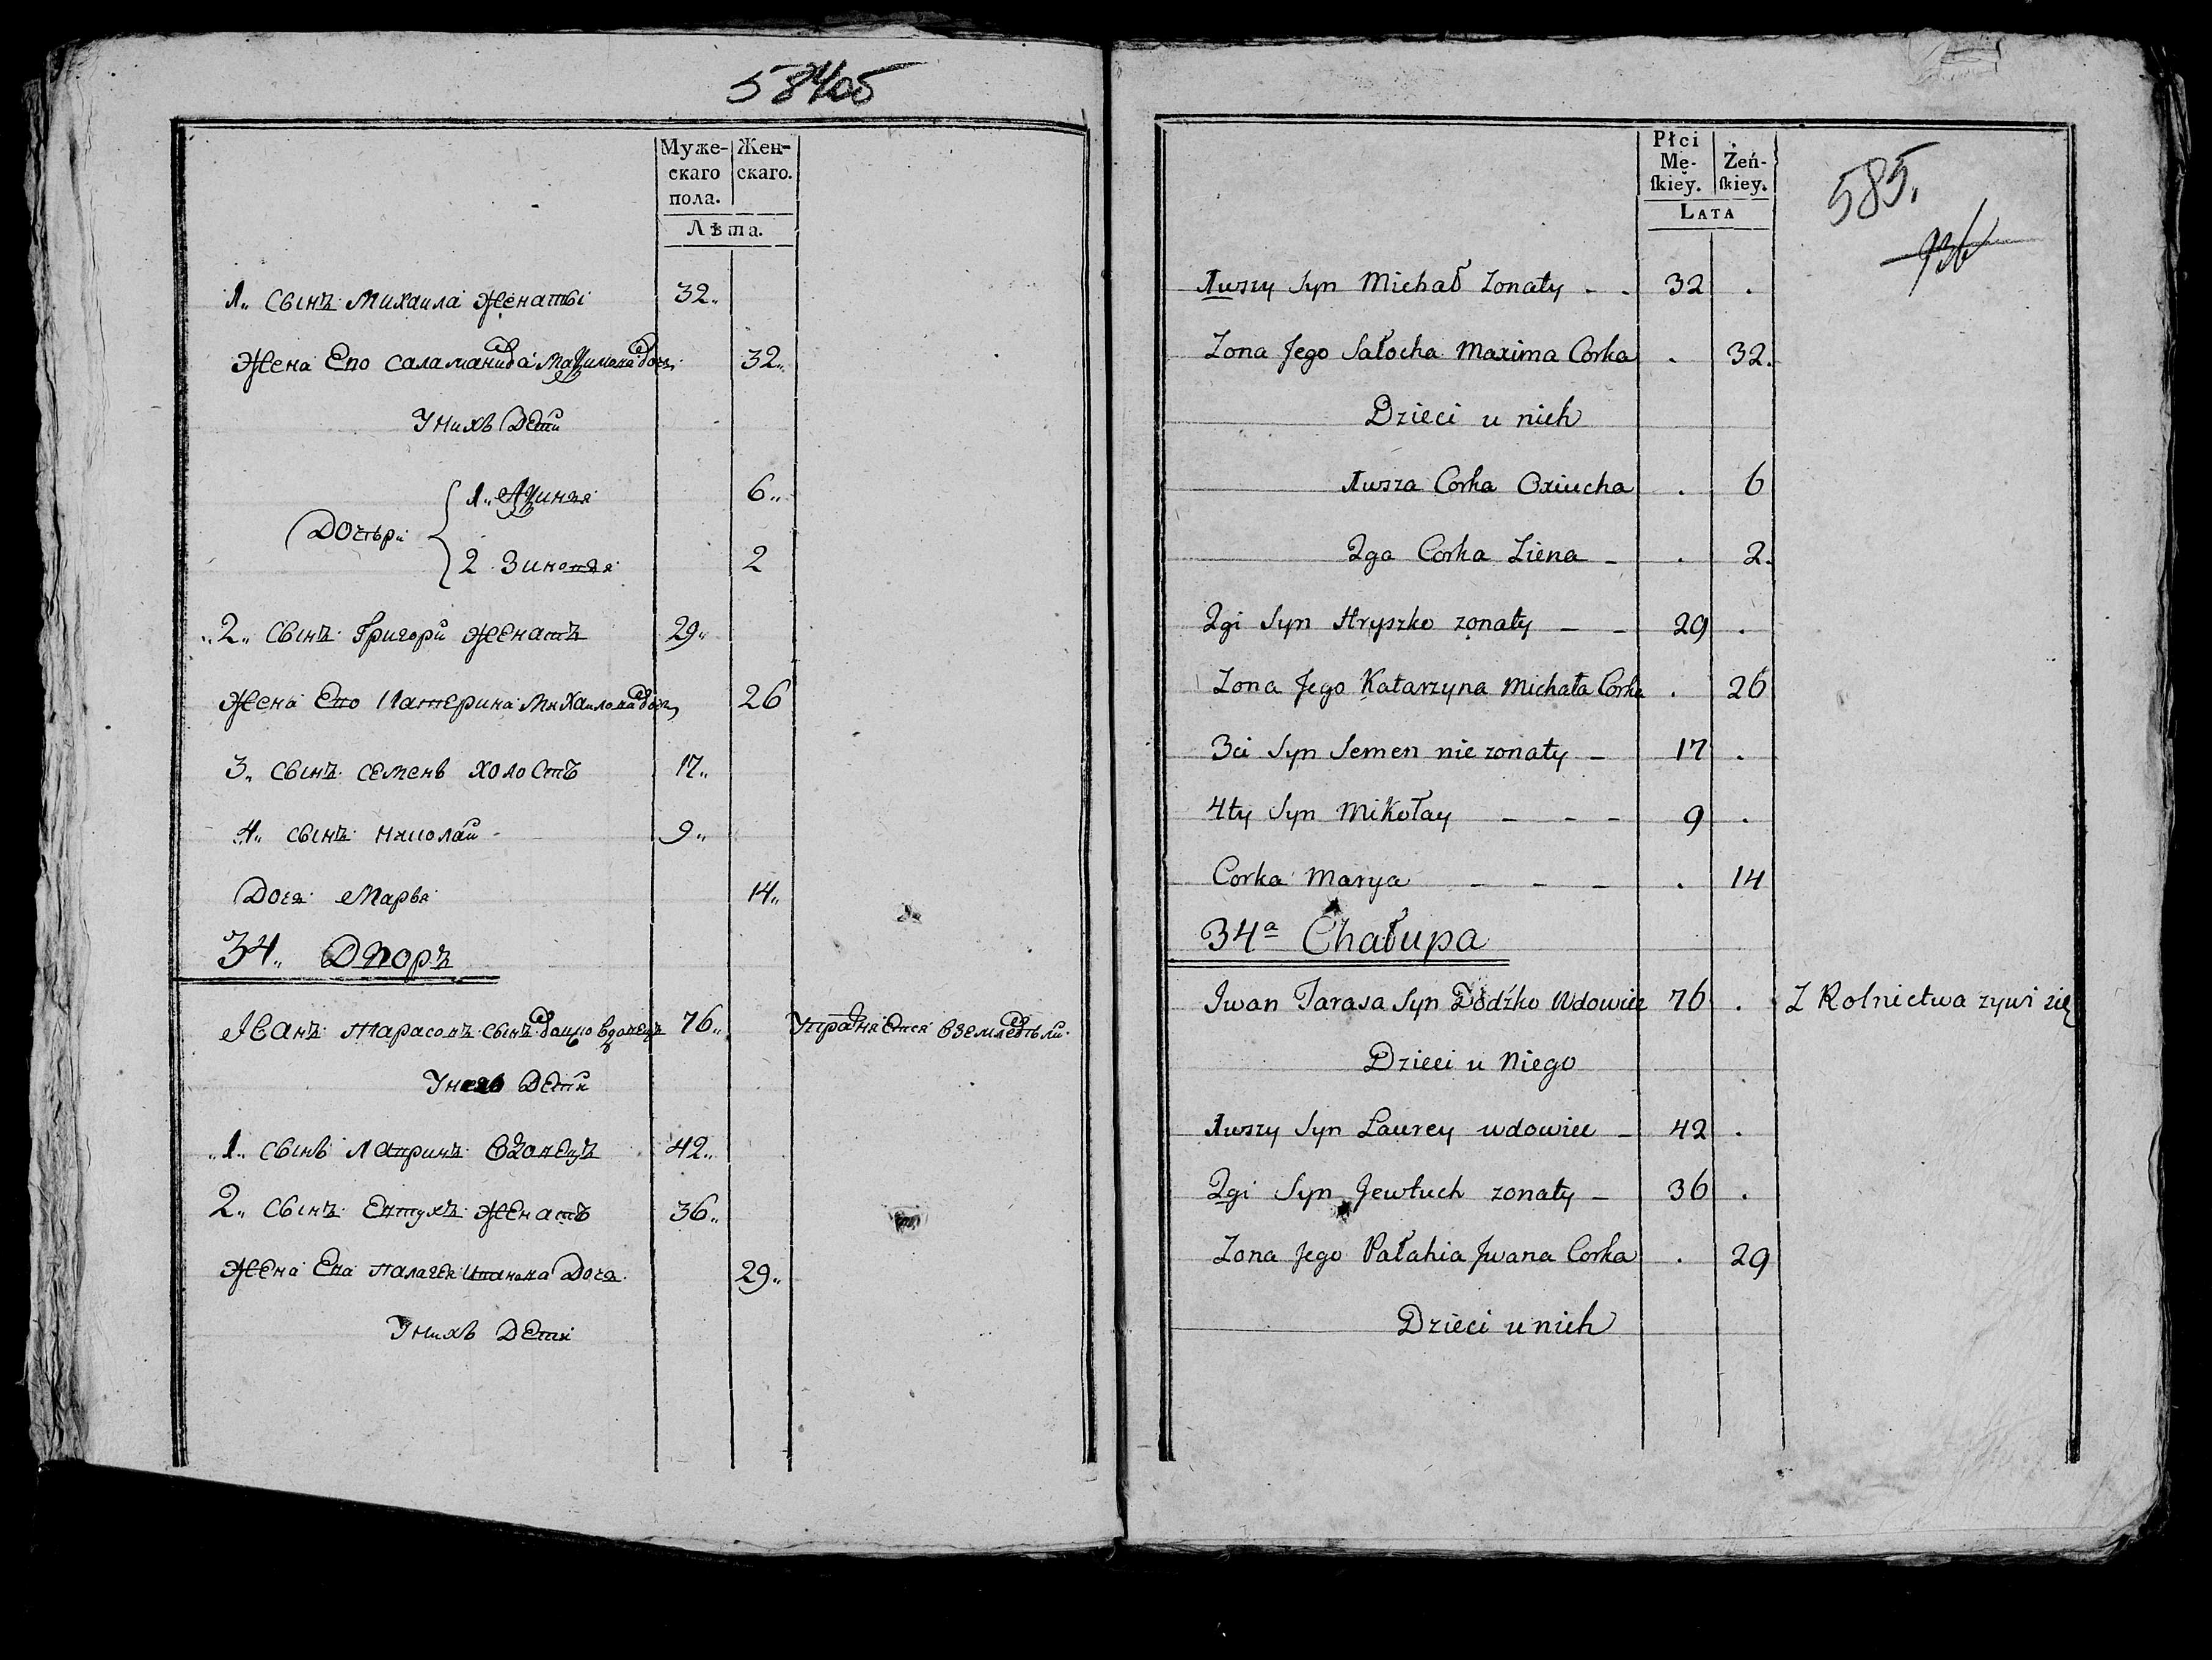 584об
Муже- Жен-
скаго скаго.
пола.
Лѣта.
1„ сынъ Михаила женаты 32„
Жена Его Саламанида Мазимова доч. 32„
У нихъ Дети
1„ Азиния 6„
Дочѣри
2. Зиновия 2
2„ сынъ Григори женатъ 29„
Жена Его Катерина Михаилова доч. 26
3„ сынъ семенъ холостъ 17„
4„ сынъ николаи 9„
Доча Марья 14„
34„ Дворъ
Іванъ Тарасовъ сынъ вдовецъ 76„ Управняется в земледѣли.
У него Дети
1„ сынъ Лавринъ Вдовецъ 42„
2„ сынъ Евтухъ женатъ 36„
Жена Ева палагея Иванова Доча 29„
У нихъ Дети
Płci
Mę- Żeń-
ſkiey. ſkiey.
LATA
585.
936
1wszy Syn Michał Zonaty - - 32 .
Zona Jego Sałocha Maxima Corka . 32.
Dzieci u nich
1wsza Corka Oxiucha . 6
2ga Corka Ziena - . 2.
2gi Syn Hryszko zonaty - - 29 .
Zona Jego Katarzyna Michała Corka . 26
3ci Syn Semen nie zonaty - 17 .
4ty Syn Mikołay - - - 9 .
Corka Marya - - - . 14
34ª Chałupa
Iwan Tarasa Syn Wdowiec 76 . Z Rolnictwa zywi się
Dzieci u Niego
1wszy Syn Laurey wdowiec - 42 .
2gi Syn Jewtuch zonaty - 36 .
Zona Jego Pałahia Jwana Corka . 29
Dzieci u nich